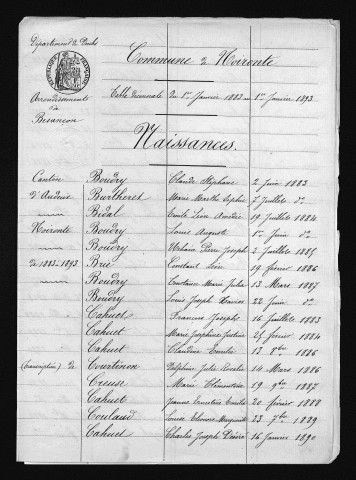 Département du Doubs
Commune de Noironte
RÉPUBLIQUE FRANÇAISE
Arrondissement
de
Besançon
Table décennale du 1er Janvier 1883 au 1er Janvier 1893
Naissances.
Canton Boudry Claude Stéphane 2 Juin 1883
d'Audeux Burtheret Marie Marthe Sophie 7 Juillet do
Bidal Emile Léon Amédée 19 Juillet 1884
Noironte Boudry Louis Auguste 1er Juin do
Boudry Urbain Pierre Joseph 2 Juillet 1885
de 1883-1893 Brie Constant Léon 19 février 1886
Boudry Constance Marie Julie 13 Mars 1887
Boudry Louis Joseph Xavier 22 Juin do
Cahuet Francois Joseph 16 Juillet 1883
Cahuet Marie Joséphine Justine 25 février 1884
Cahuet Claudine Emilie 13 8bre 1886
(transcription) de Courtinon Delphine Julie Rosalie 14 Mars 1886
Creuse Marie Clémentine 19 9bre 1887
Cahuet Jeanne Ernestine Emilie 20 février 1888
Coulaud Louise Eléonore Marguerite 23 7bre 1889
Cahuet Charles Joseph Désiré 16 Janvier 1890